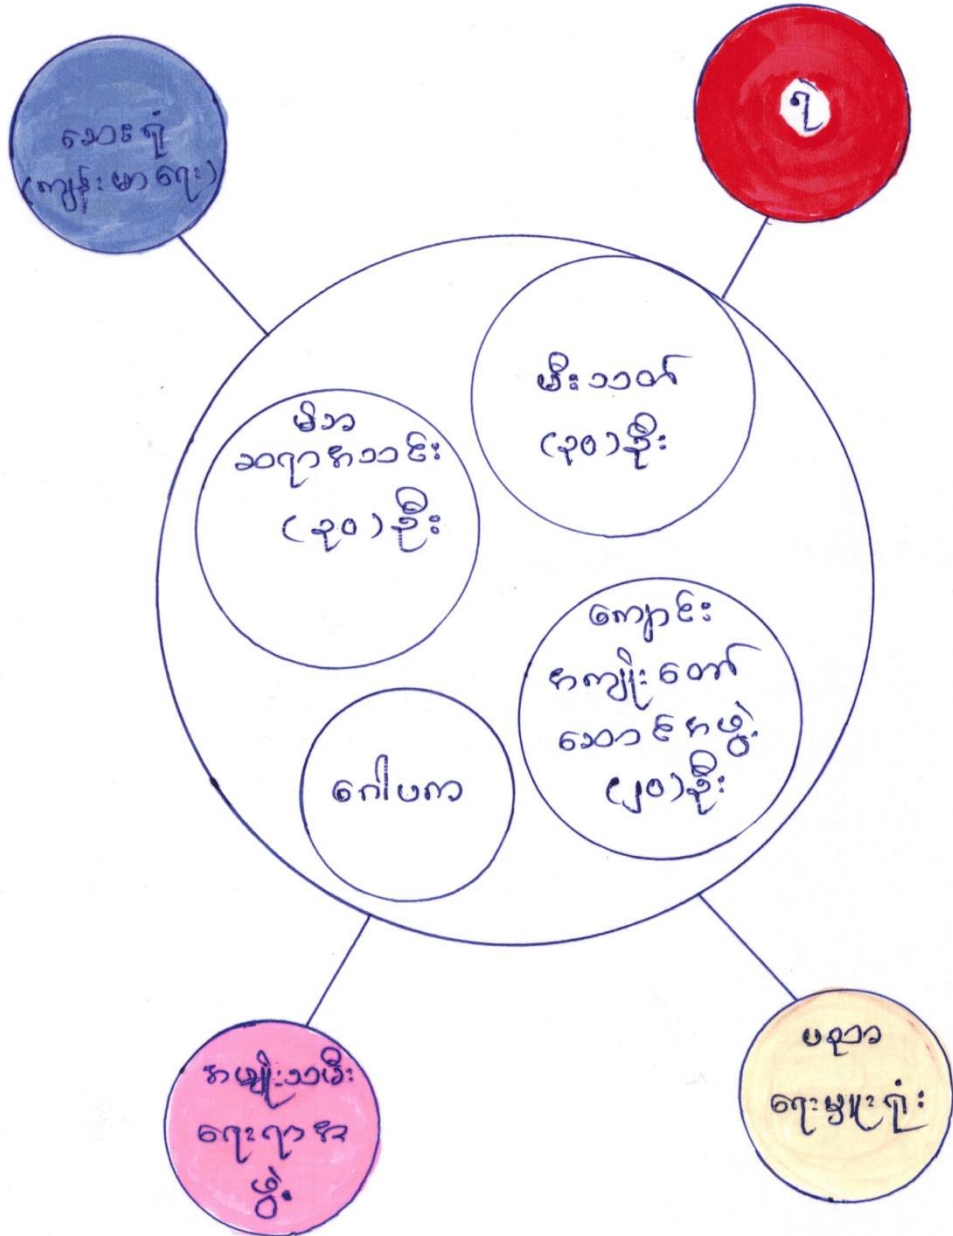 ဆေးရုံ
(ကျန်းမာရေး)
ရ
မီးသတ်
(၃၀)ဦး
မိဘ
ဆရာအသင်း
(၃၀)ဦး
ကျောင်း
အကျိုးတော်
ဆောင်အဖွဲ့
(၂၀)ဦး
ဂေါပက
အမျိုးသမီး
ရေးရာအ
ဖွဲ့
ပညာ
ရေးမှူးရုံး